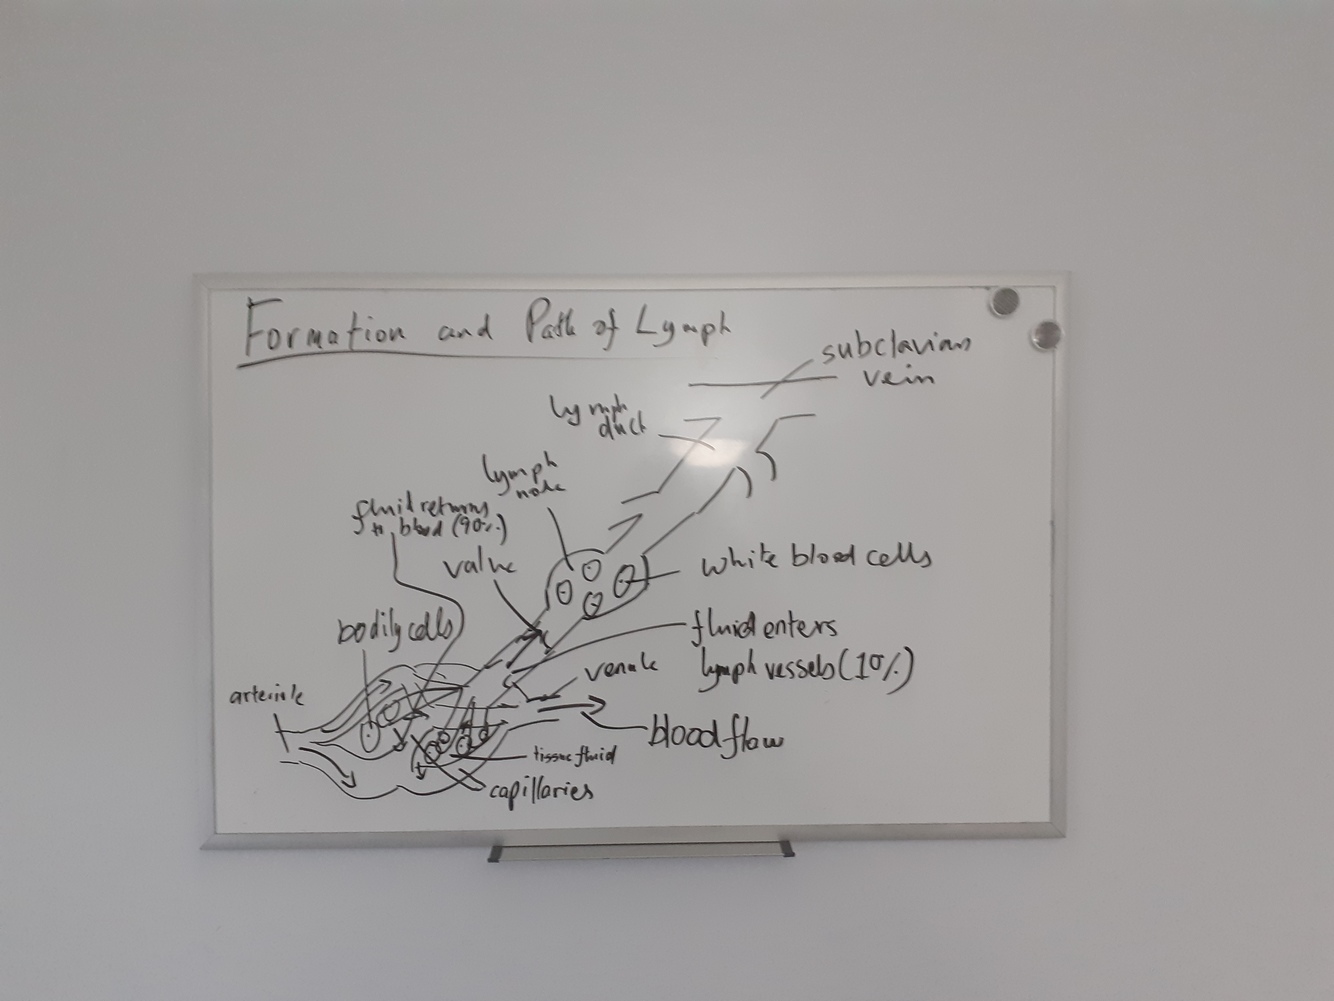 Formation and Path of Lymph
subclavian
vein
lymph
duct
lymph
node
fluid returns
to blood (90%)
valve
white blood cells
bodily cells
fluid enters
lymph vessels (10%)
venule
arteriole
blood flow
tissue fluid
capillaries